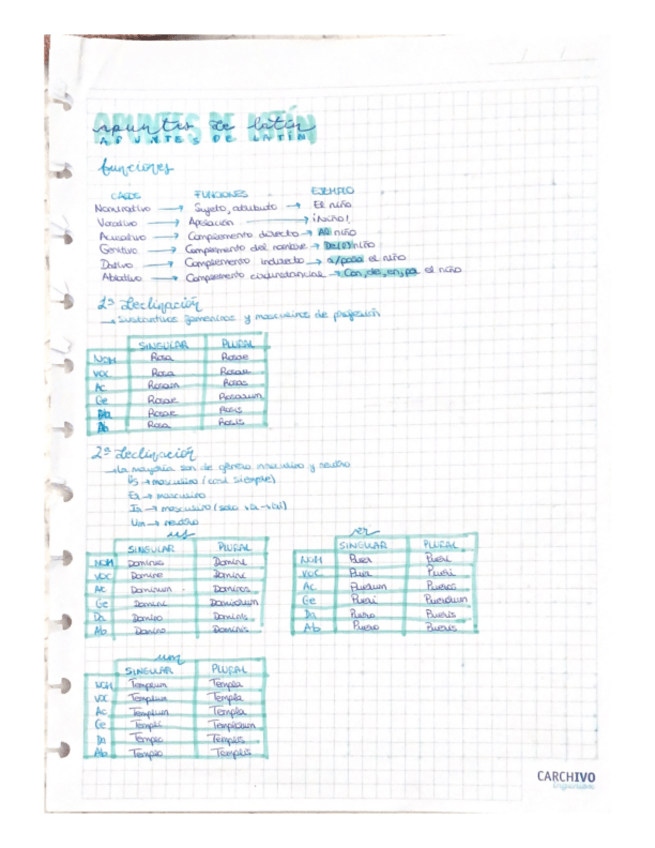 apuntes de latín
APUNTES DE LATÍN
funciones
CASOS FUNCIONES EJEMPLO
Nominativo → Sujeto, atributo → El niño
Vocativo → Apelación → ¡Niño!
Acusativo → Complemento directo → Al niño
Genitivo → Complemento del nombre → De(l) niño
Dativo → Complemento indirecto → a/para el niño
Ablativo → Complemento circunstancial → Con, de, en, por el niño
1ª declinación
→ Sustantivos femeninos y masculinos de profesión
SINGULAR PLURAL
NOM Rosa Rosae
VOC Rosa Rosae
Ac Rosam Rosas
Ge Rosae Rosarum
Da Rosae Rosis
Ab Rosa Rosis
2ª declinación
→ La mayoría son de género masculino y neutro
Us → masculino (casi siempre)
Er → masculino
Ir → masculino (solo
Um → neutro
us
SINGULAR PLURAL
NOM Dominus Domini
VOC Domine Domini
Ac Dominum Dominos
Ge Domini Dominorum
Da Domino Dominis
Ab Domino Dominis
er
SINGULAR PLURAL
NOM Puer Pueri
VOC Puer Pueri
Ac Puerum Pueros
Ge Pueri Puerorum
Da Puero Pueris
Ab Puero Pueris
um
SINGULAR PLURAL
NOM Templum Templa
VOC Templum Templa
Ac Templum Templa
Ge Templi Templorum
Da Templo Templis
Ab Templo Templis
CARCHIVO